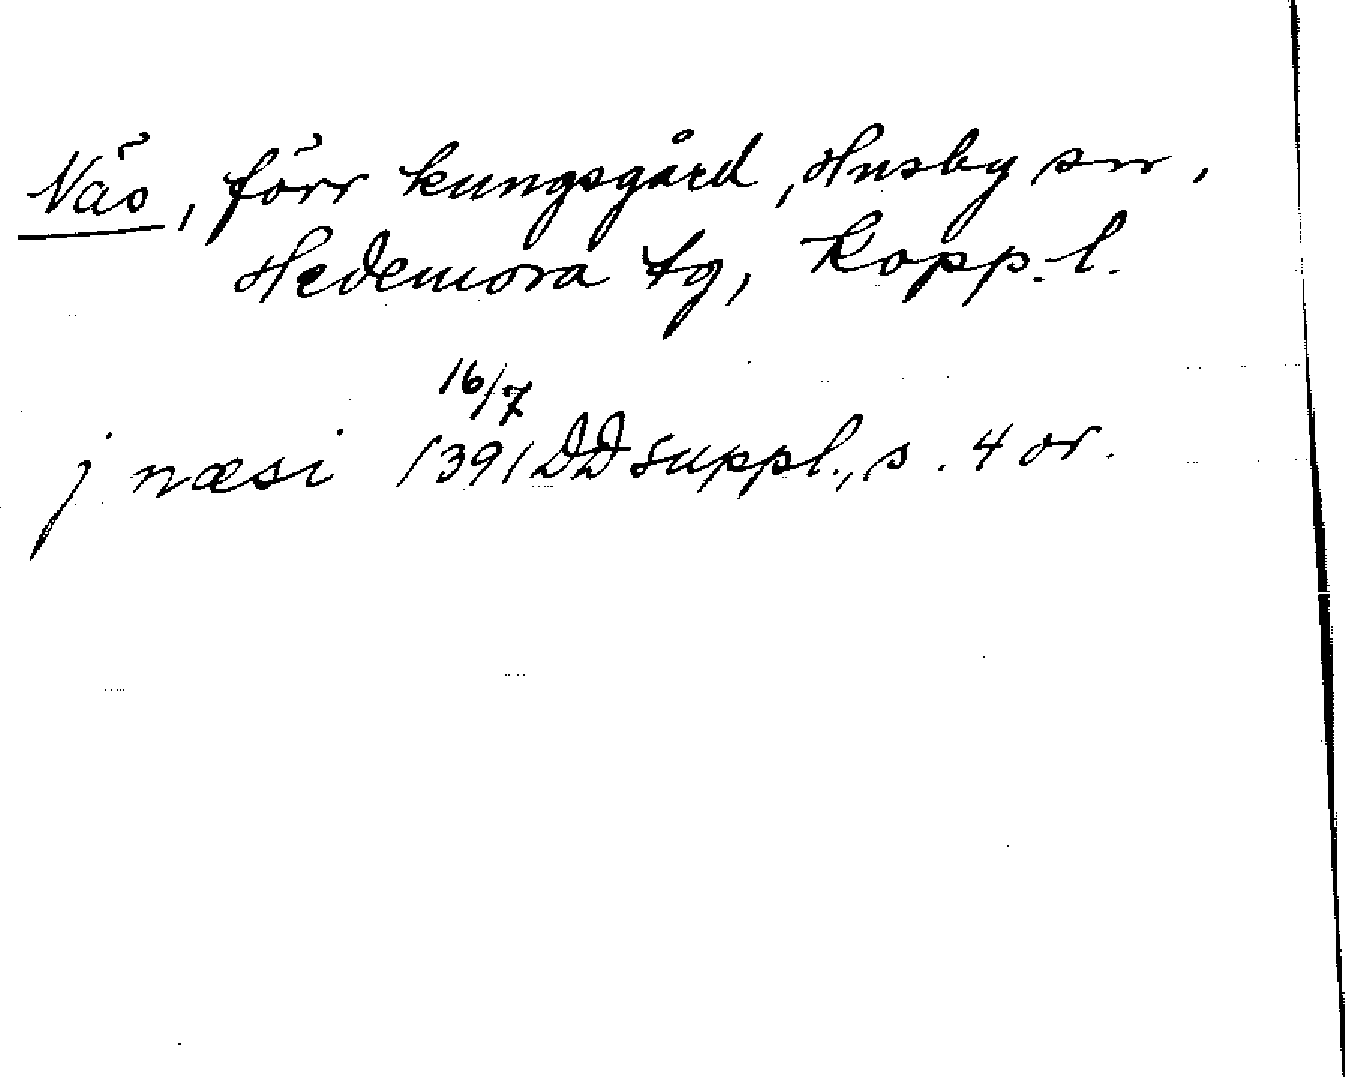 Näs, förr kungsgård, Husby sn,
Hedemora tg, Kopp. l.
j næsi 16/7 1391 DD suppl., s. 4 or.